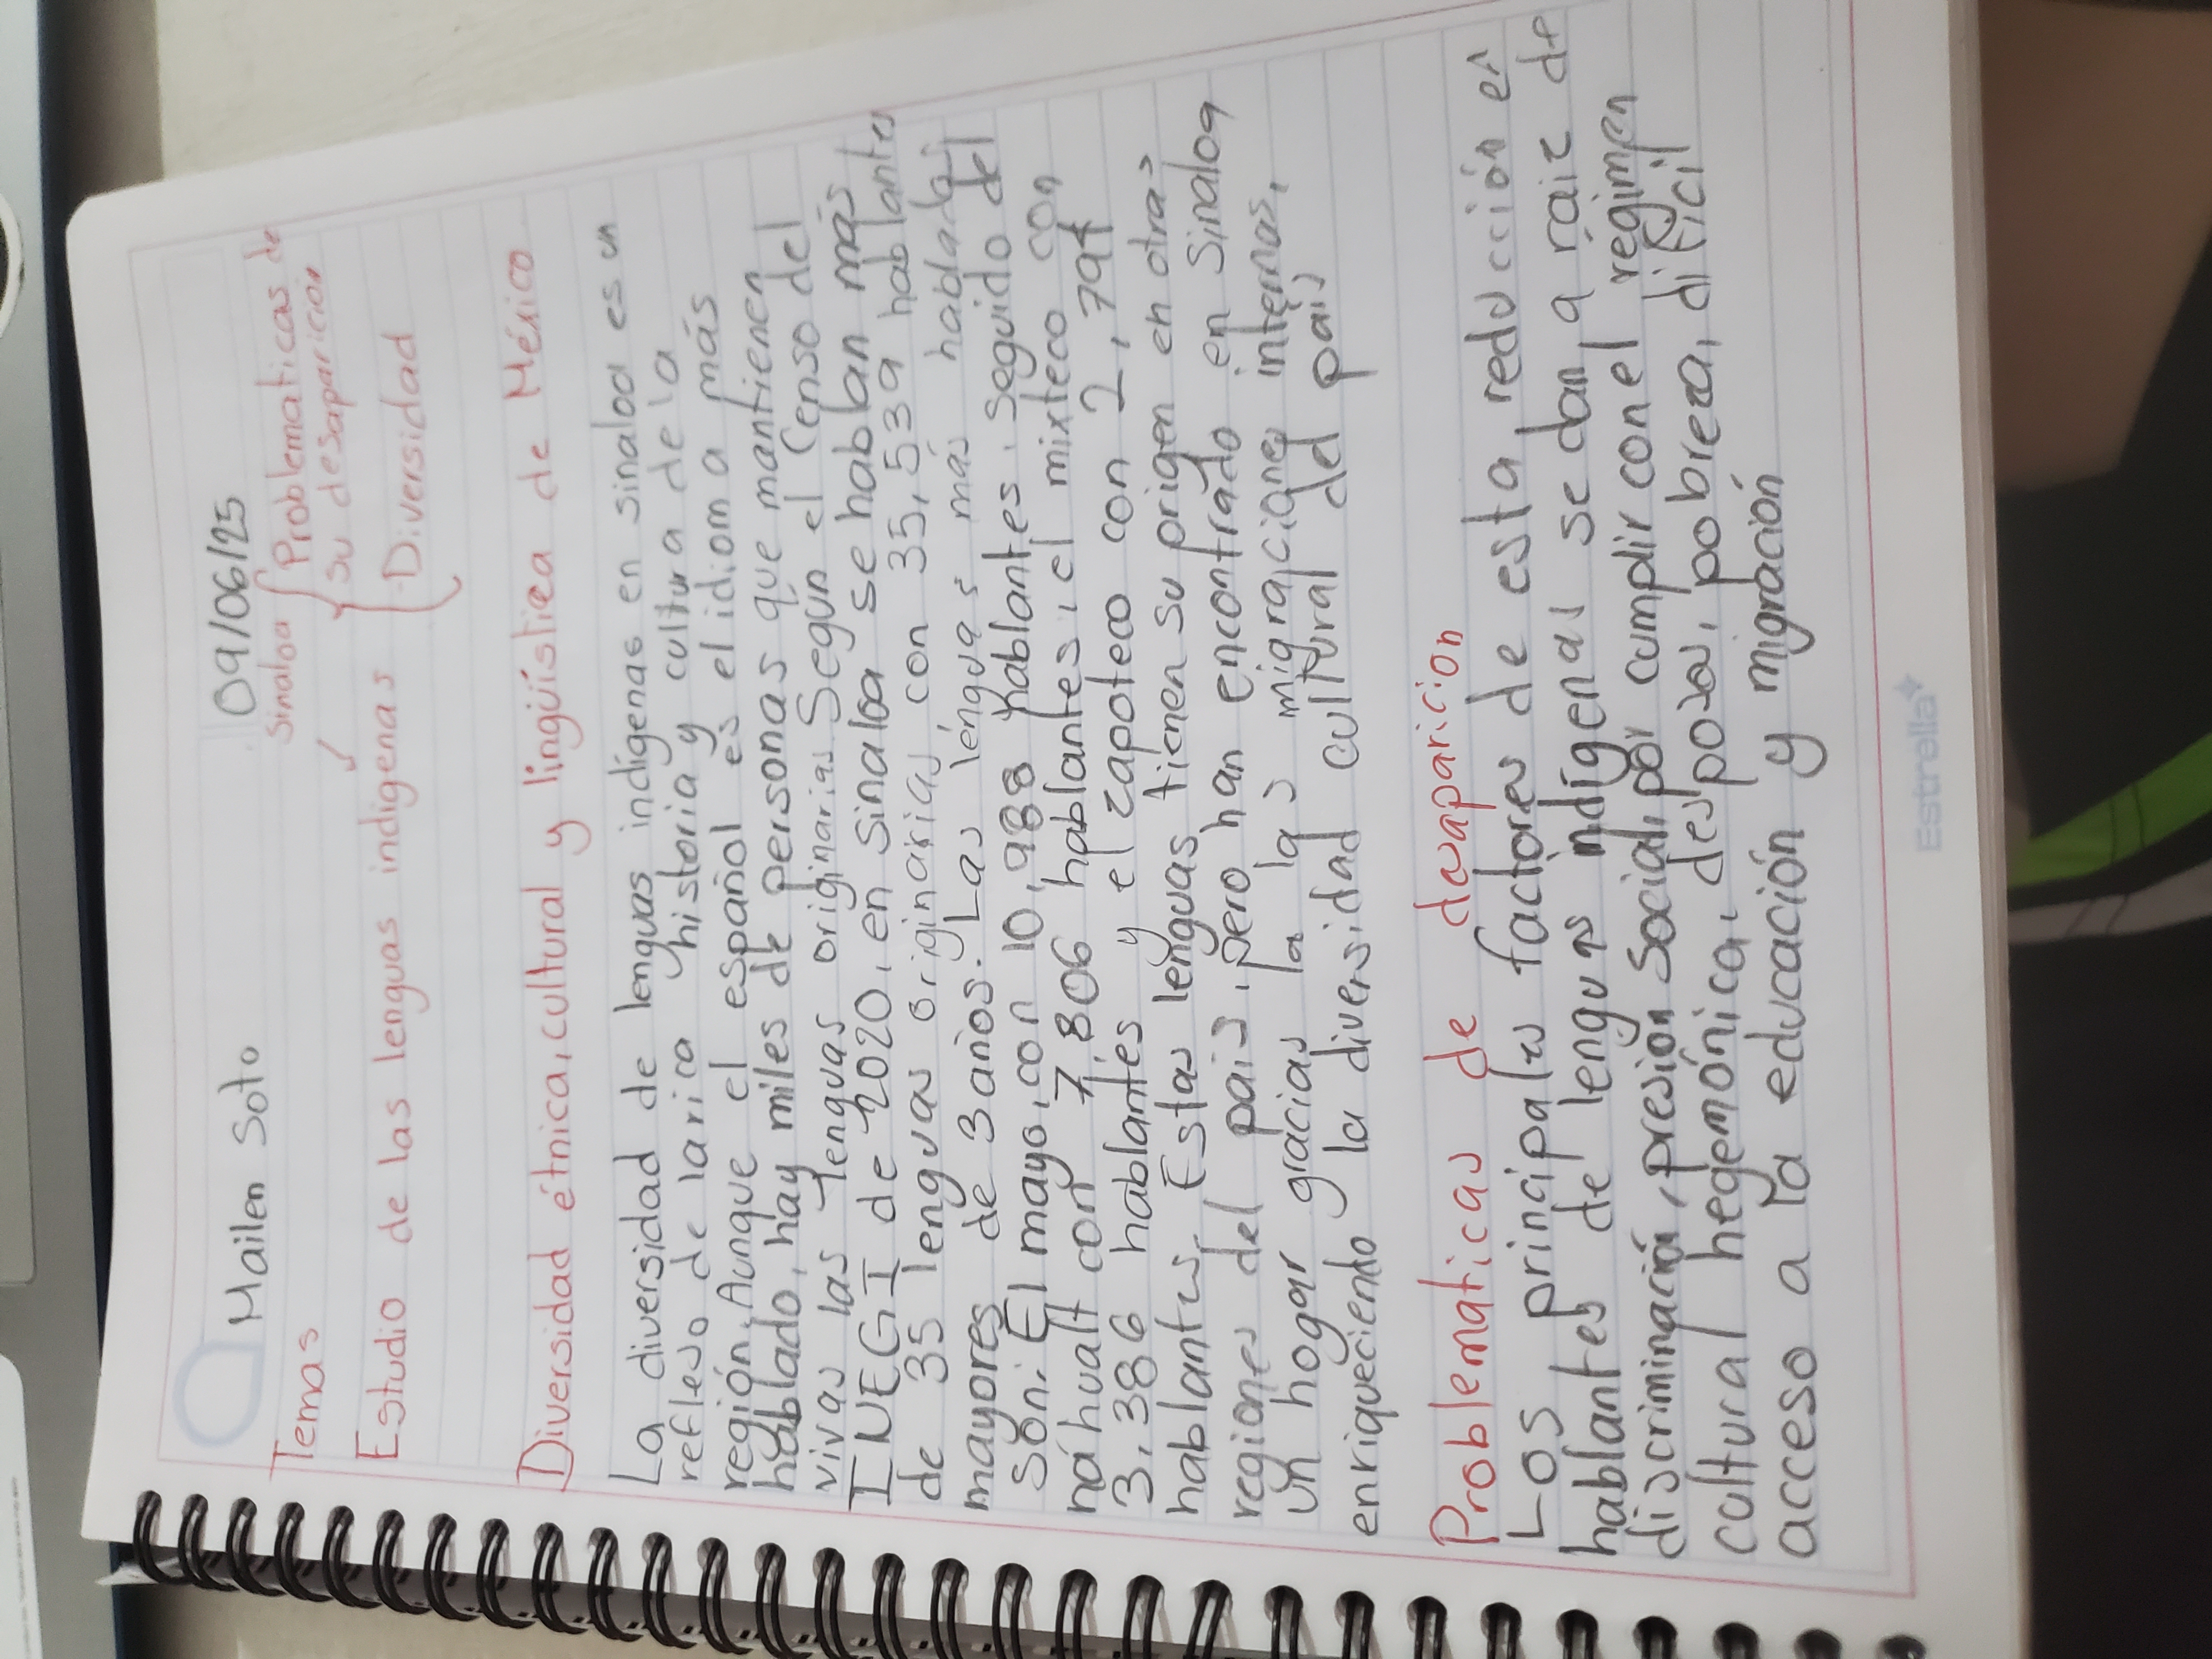 Mailen Soto 09/06/25
Temas Sinaloa { Problematicas de
su desaparición
Estudio de las lenguas indigenas { Diversidad
Diversidad étnica, cultural y lingüística de México
La diversidad de lenguas indígenas en sinaloa es un
reflejo de la rica historia y cultura de la
región. Aunque el español es el idioma más
hablado, hay miles de personas que mantienen
vivas las lenguas originarias. Según el Censo del
INEGI de 2020, en sinaloa se hablan más
de 35 lenguas originarias, con 35,539 hablantes
mayores de 3 años. Las lenguas más habladas
son: El mayo, con 10,988 hablantes, seguido del
náhualt con 7,806 hablantes, el mixteco con
3,386 hablantes y el zapoteco con 2,794
hablantes. Estas lenguas tienen su origen en otras
regiones del país, pero han encontrado en Sinaloa
un hogar gracias a las migraciones internas,
enriqueciendo la diversidad cultural del país
Problematicas de desaparicion
Los principales factores de esta reducción en
hablantes de lenguas indígenas se dan a raiz de
discriminación, presión social por cumplir con el regimen
cultural hegemónica, despojos, pobreza, dificil
acceso a la educación y migración
Estrella